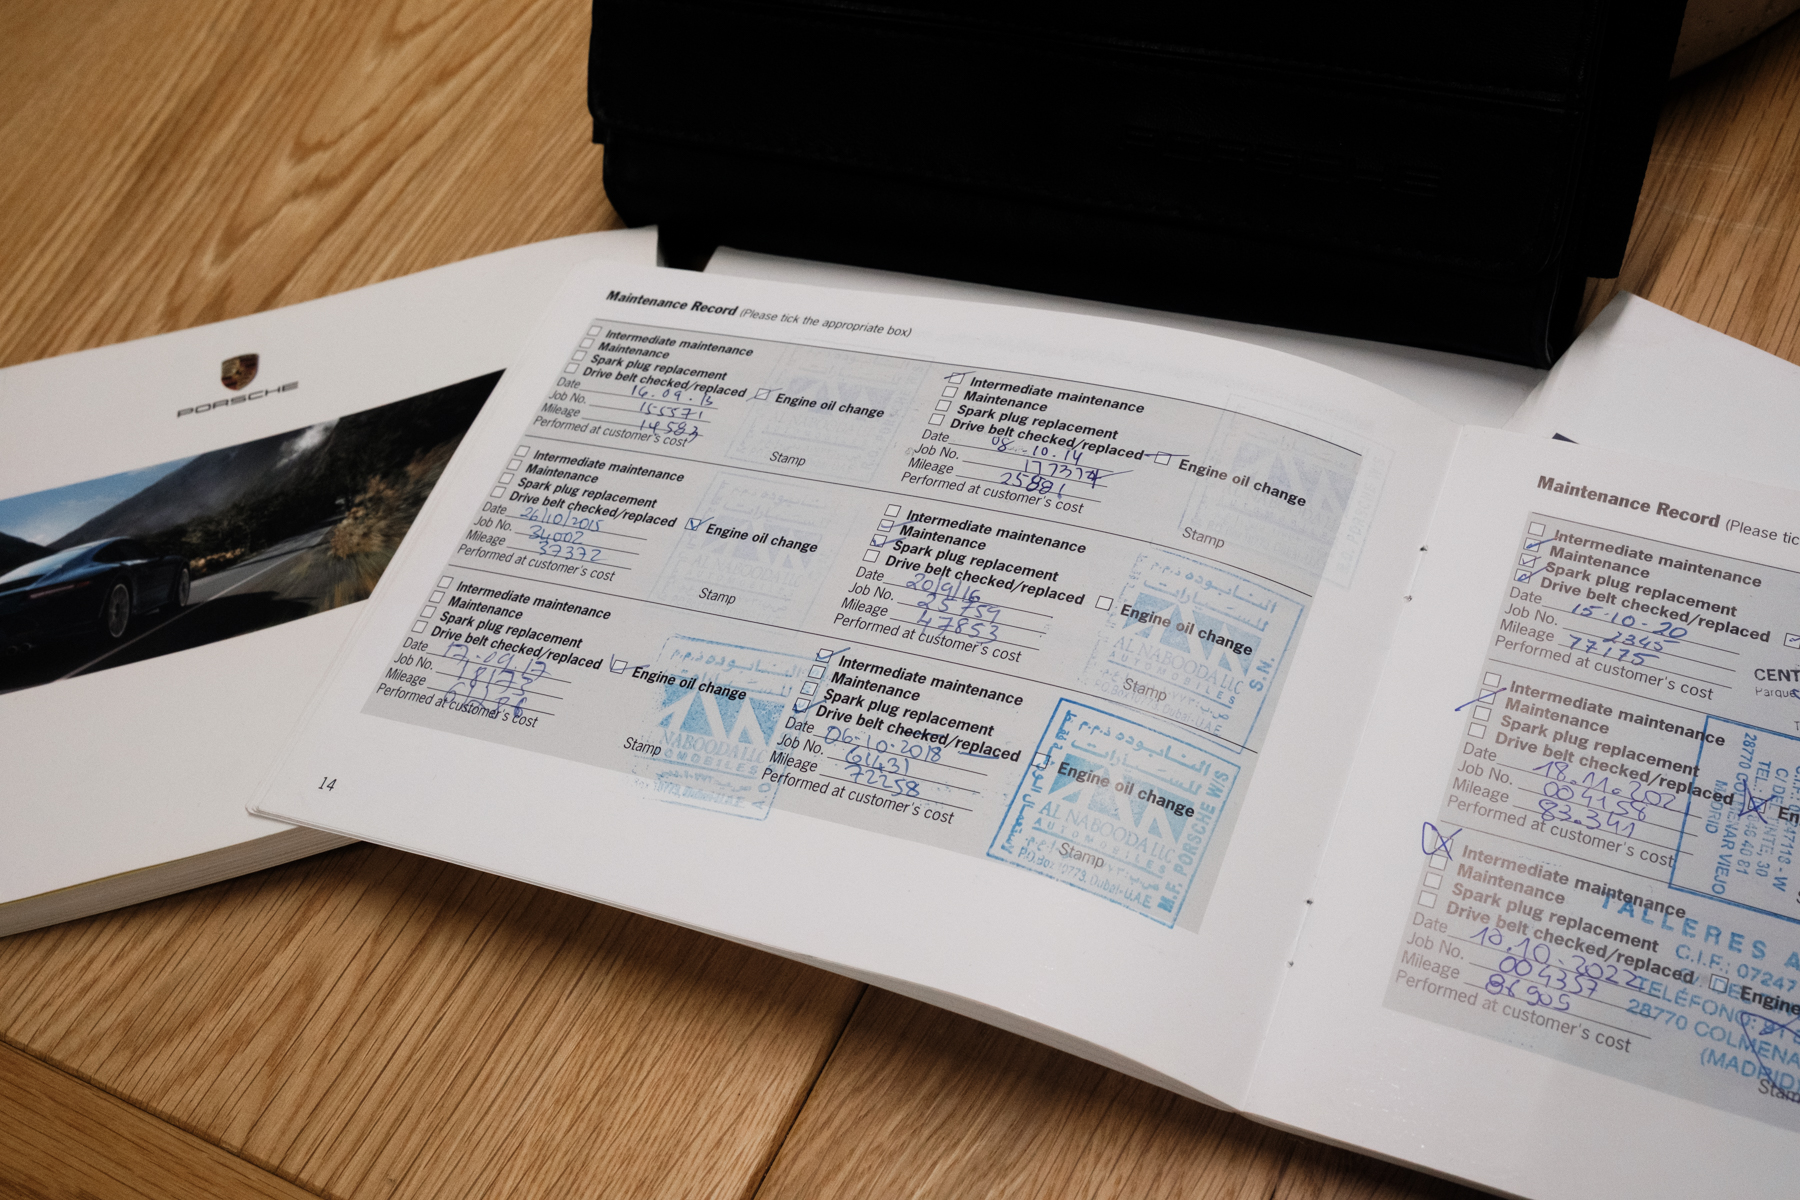 PORSCHE
Maintenance Record (Please tick the appropriate box)
Intermediate maintenance
Maintenance
Spark plug replacement
Drive belt checked/replaced
Engine oil change
Date 16.09.13
Job No. 155571
Mileage 14583
Performed at customer's cost
Stamp
Intermediate maintenance
Maintenance
Spark plug replacement
Drive belt checked/replaced
Engine oil change
Date 08.10.14
Job No. 177374
Mileage 25881
Performed at customer's cost
Stamp
Intermediate maintenance
Maintenance
Spark plug replacement
Drive belt checked/replaced
Engine oil change
Date 26/10/2015
Job No. 34002
Mileage 37372
Performed at customer's cost
Stamp
Intermediate maintenance
Maintenance
Spark plug replacement
Drive belt checked/replaced
Engine oil change
Date 20/9/16
Job No. 25759
Mileage 47853
Performed at customer's cost
Stamp
النابوده ذ.م.م
للسيارات
AL NABOODA LLC
AUTOMOBILES
Dubai-U.A.E
S.N.
Intermediate maintenance
Maintenance
Spark plug replacement
Drive belt checked/replaced
Engine oil change
Date 17.09.17
Job No.
Mileage
Performed at customer's cost
Stamp
النابوده ذ.م.م
للسيارات
NABOODA LLC
Dubai-U.A.E
Intermediate maintenance
Maintenance
Spark plug replacement
Drive belt checked/replaced
Engine oil change
Date 06-10-2018
Job No. 61431
Mileage 72258
Performed at customer's cost
Stamp
النابوده ذ.م.م
للسيارات
AL NABOODA LLC
AUTOMOBILES
P.O.Box 10773, Dubai-U.A.E
M.F. PORSCHE W/S
14
Maintenance Record (Please tic
Intermediate maintenance
Maintenance
Spark plug replacement
Drive belt checked/replaced
Date 15-10-20
Job No. 2345
Mileage 77175
Performed at customer's cost
CENT
Parque
Intermediate maintenance
Maintenance
Spark plug replacement
Drive belt checked/replaced
En
Date 18.11.202
Job No. 004158
Mileage 83.341
Performed at customer's cost
MADRID
Intermediate maintenance
Maintenance
Spark plug replacement
Drive belt checked/replaced
Engine
Date 10.10.2022
Job No. 004357
Mileage 86909
Performed at customer's cost
TALLERES A
C.I.F.: 07247
TELÉFONO: 91
28770 COLMENA
(MADRID)
Stam